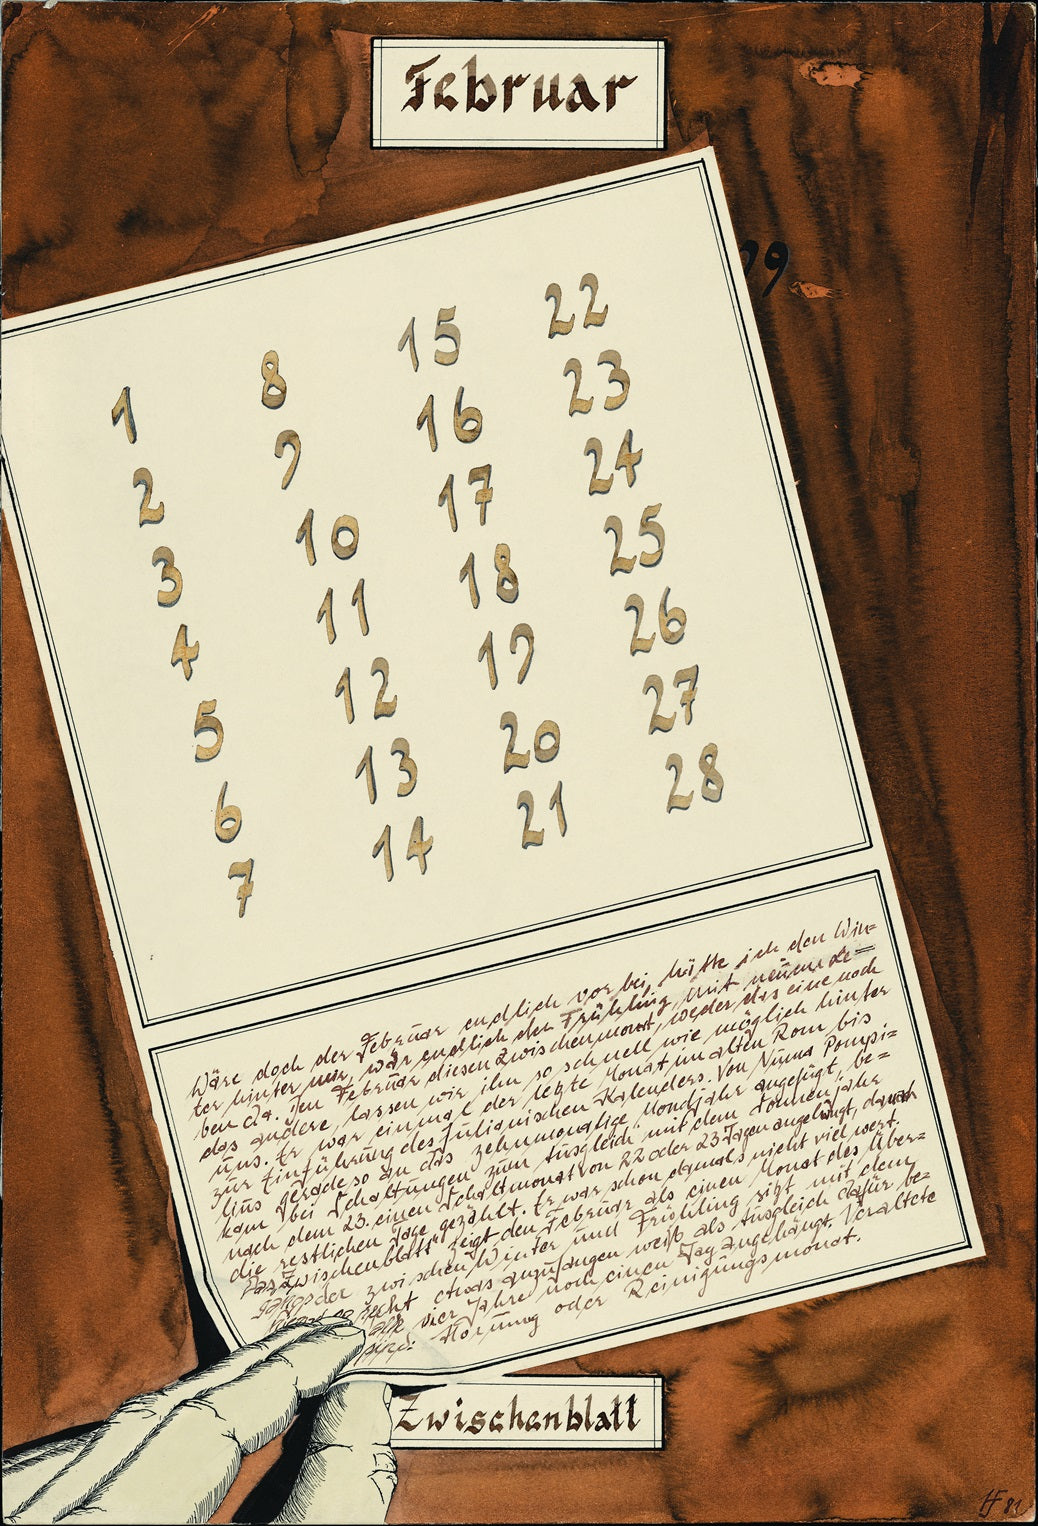 Februar
29
1 8 15 22
2 9 16 23
3 10 17 24
4 11 18 25
5 12 19 26
6 13 20 27
7 14 21 28
Wäre doch der Februar endlich vorbei, hätte ich den Win=
ter hinter mir, wär endlich der Frühling mit neuem Le=
ben da. Den Februar diesen Zwischenmonat, weder das eine noch
das andere, lassen wir ihn so schnell wie möglich hinter
uns. Er war einmal der letzte Monat im alten Rom bis
zur Einführung des Julianischen Kalenders. Von Numa Pompi=
lius gerade so an das zehnmonatige Mondjahr angefügt, be=
kam bei Schaltungen zum Ausgleich mit dem Sonnenjahre
nach dem 23. einen Schaltmonat von 22 oder 23 Tagen angehängt, danach
die restlichen Tage gezählt. Er war schon damals nicht viel wert.
Das "Zwischenblatt" zeigt den Februar als einen Monat des Über=
ganges der zwischen Winter und Frühling sitzt mit dem
recht etwas anzufangen weiß als Ausgleich dafür be=
alle vier Jahre noch einen Tag angehängt. Veraltete
Hornung oder Reinigungsmonat.
Zwischenblatt
HF 81